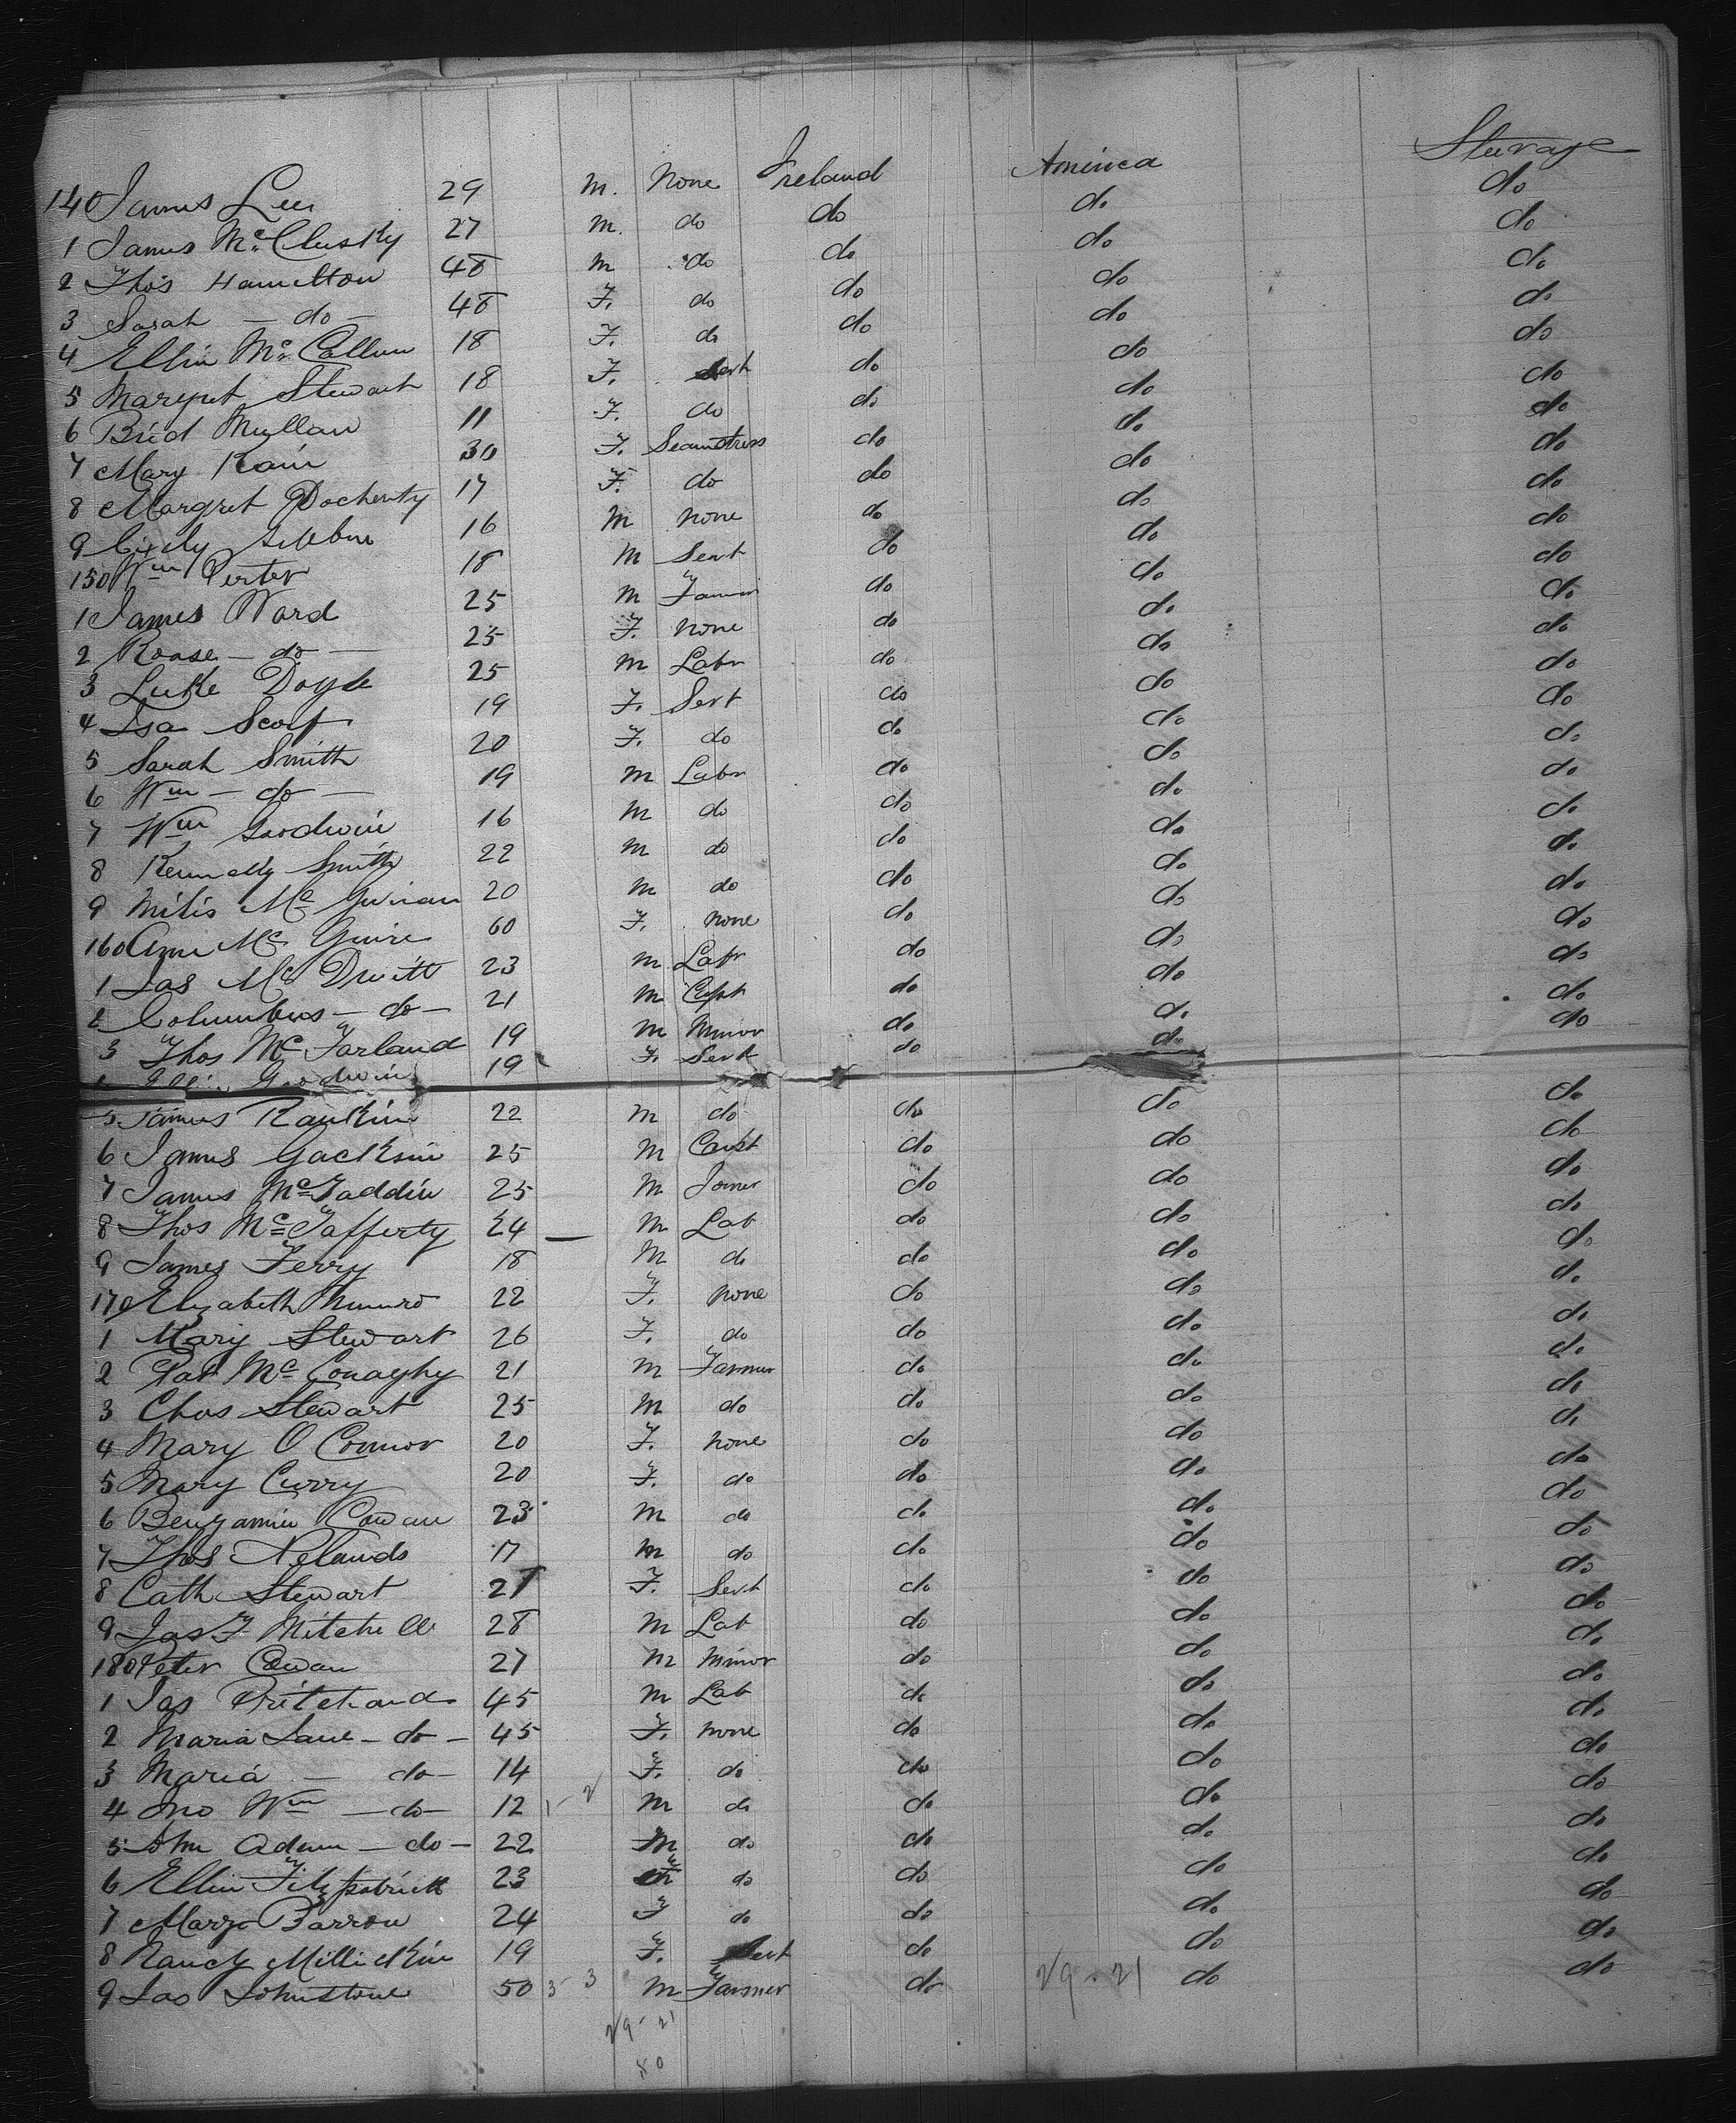 140 James Lees 29 M. None Ireland America Steerage
1 James McClusky 27 M. do do do do
2 Thos Hamilton 48 M do do do do
3 Sarah - do - 48 F. do do do do
4 Ellin McCallum 18 F. do do do do
5 Margret Stewart 18 F. Servt do do do
6 Brid Mullan 11 F. do do do do
7 Mary Kain 30 F. Seamstress do do do
8 Margret Docherty 17 F. do do do do
9 16 M None do do do
150 Wm Porter 18 M Servt do do do
1 James Ward 25 M Farmer do do do
2 Roase - do - 25 F. None do do do
3 Luke Doyle 25 M Labr do do do
4 Isa 19 F. Servt do do do
5 Sarah Smith 20 F. do do do do
6 Wm - do - 19 M Labr do do do
7 Wm Goodwin 16 M do do do do
8 Kennedy Smith 22 M do do do do
9 Mc 20 M do do do do
160 Ann McGuire 60 F. None do do do
1 Jas McDevitt 23 M Labr do do do
2 Columbus - do - 21 M do do do
3 Thos McFarland 19 M Minor do do do
Goodwin 19 F. Servt do do do
5 James Rankin 22 M do do do do
6 James Jackson 25 M do do do
7 James McFaddin 25 M Joiner do do do
8 Thos McCafferty 24 M Lab do do do
9 James Ferry 18 M do do do do
170 Elizabeth Munro 22 F. None do do do
1 Mary Stewart 26 F. do do do do
2 Pat McConaghy 21 M Farmer do do do
3 Chas Stewart 25 M do do do do
4 Mary O Connor 20 F. None do do do
5 Mary Curry 20 F. do do do do
6 Benjamin Cowan 23 M do do do do
7 Thos Nelands 17 M do do do do
8 Cath Stewart 21 F. Servt do do do
9 Jas F Mitchell 28 M Lab do do do
180 Peter Cowan 27 M Minor do do do
1 Jas Pritchard 45 M Lab do do do
2 Maria Jane - do - 45 F. None do do do
3 Maria - do - 14 F. do do do do
4 Jno Wm - do - 12 M do do do do
5 John Adam - do - 22 M do do do do
6 Ellin Fitzpatrick 23 F do do do do
7 Mary Barron 24 F do do do do
8 Nancy Millickin 19 F. Servt do do do
9 Jas Johnstone 50 3 3 M Farmer do 29 - 21 do do
29 - 21
50